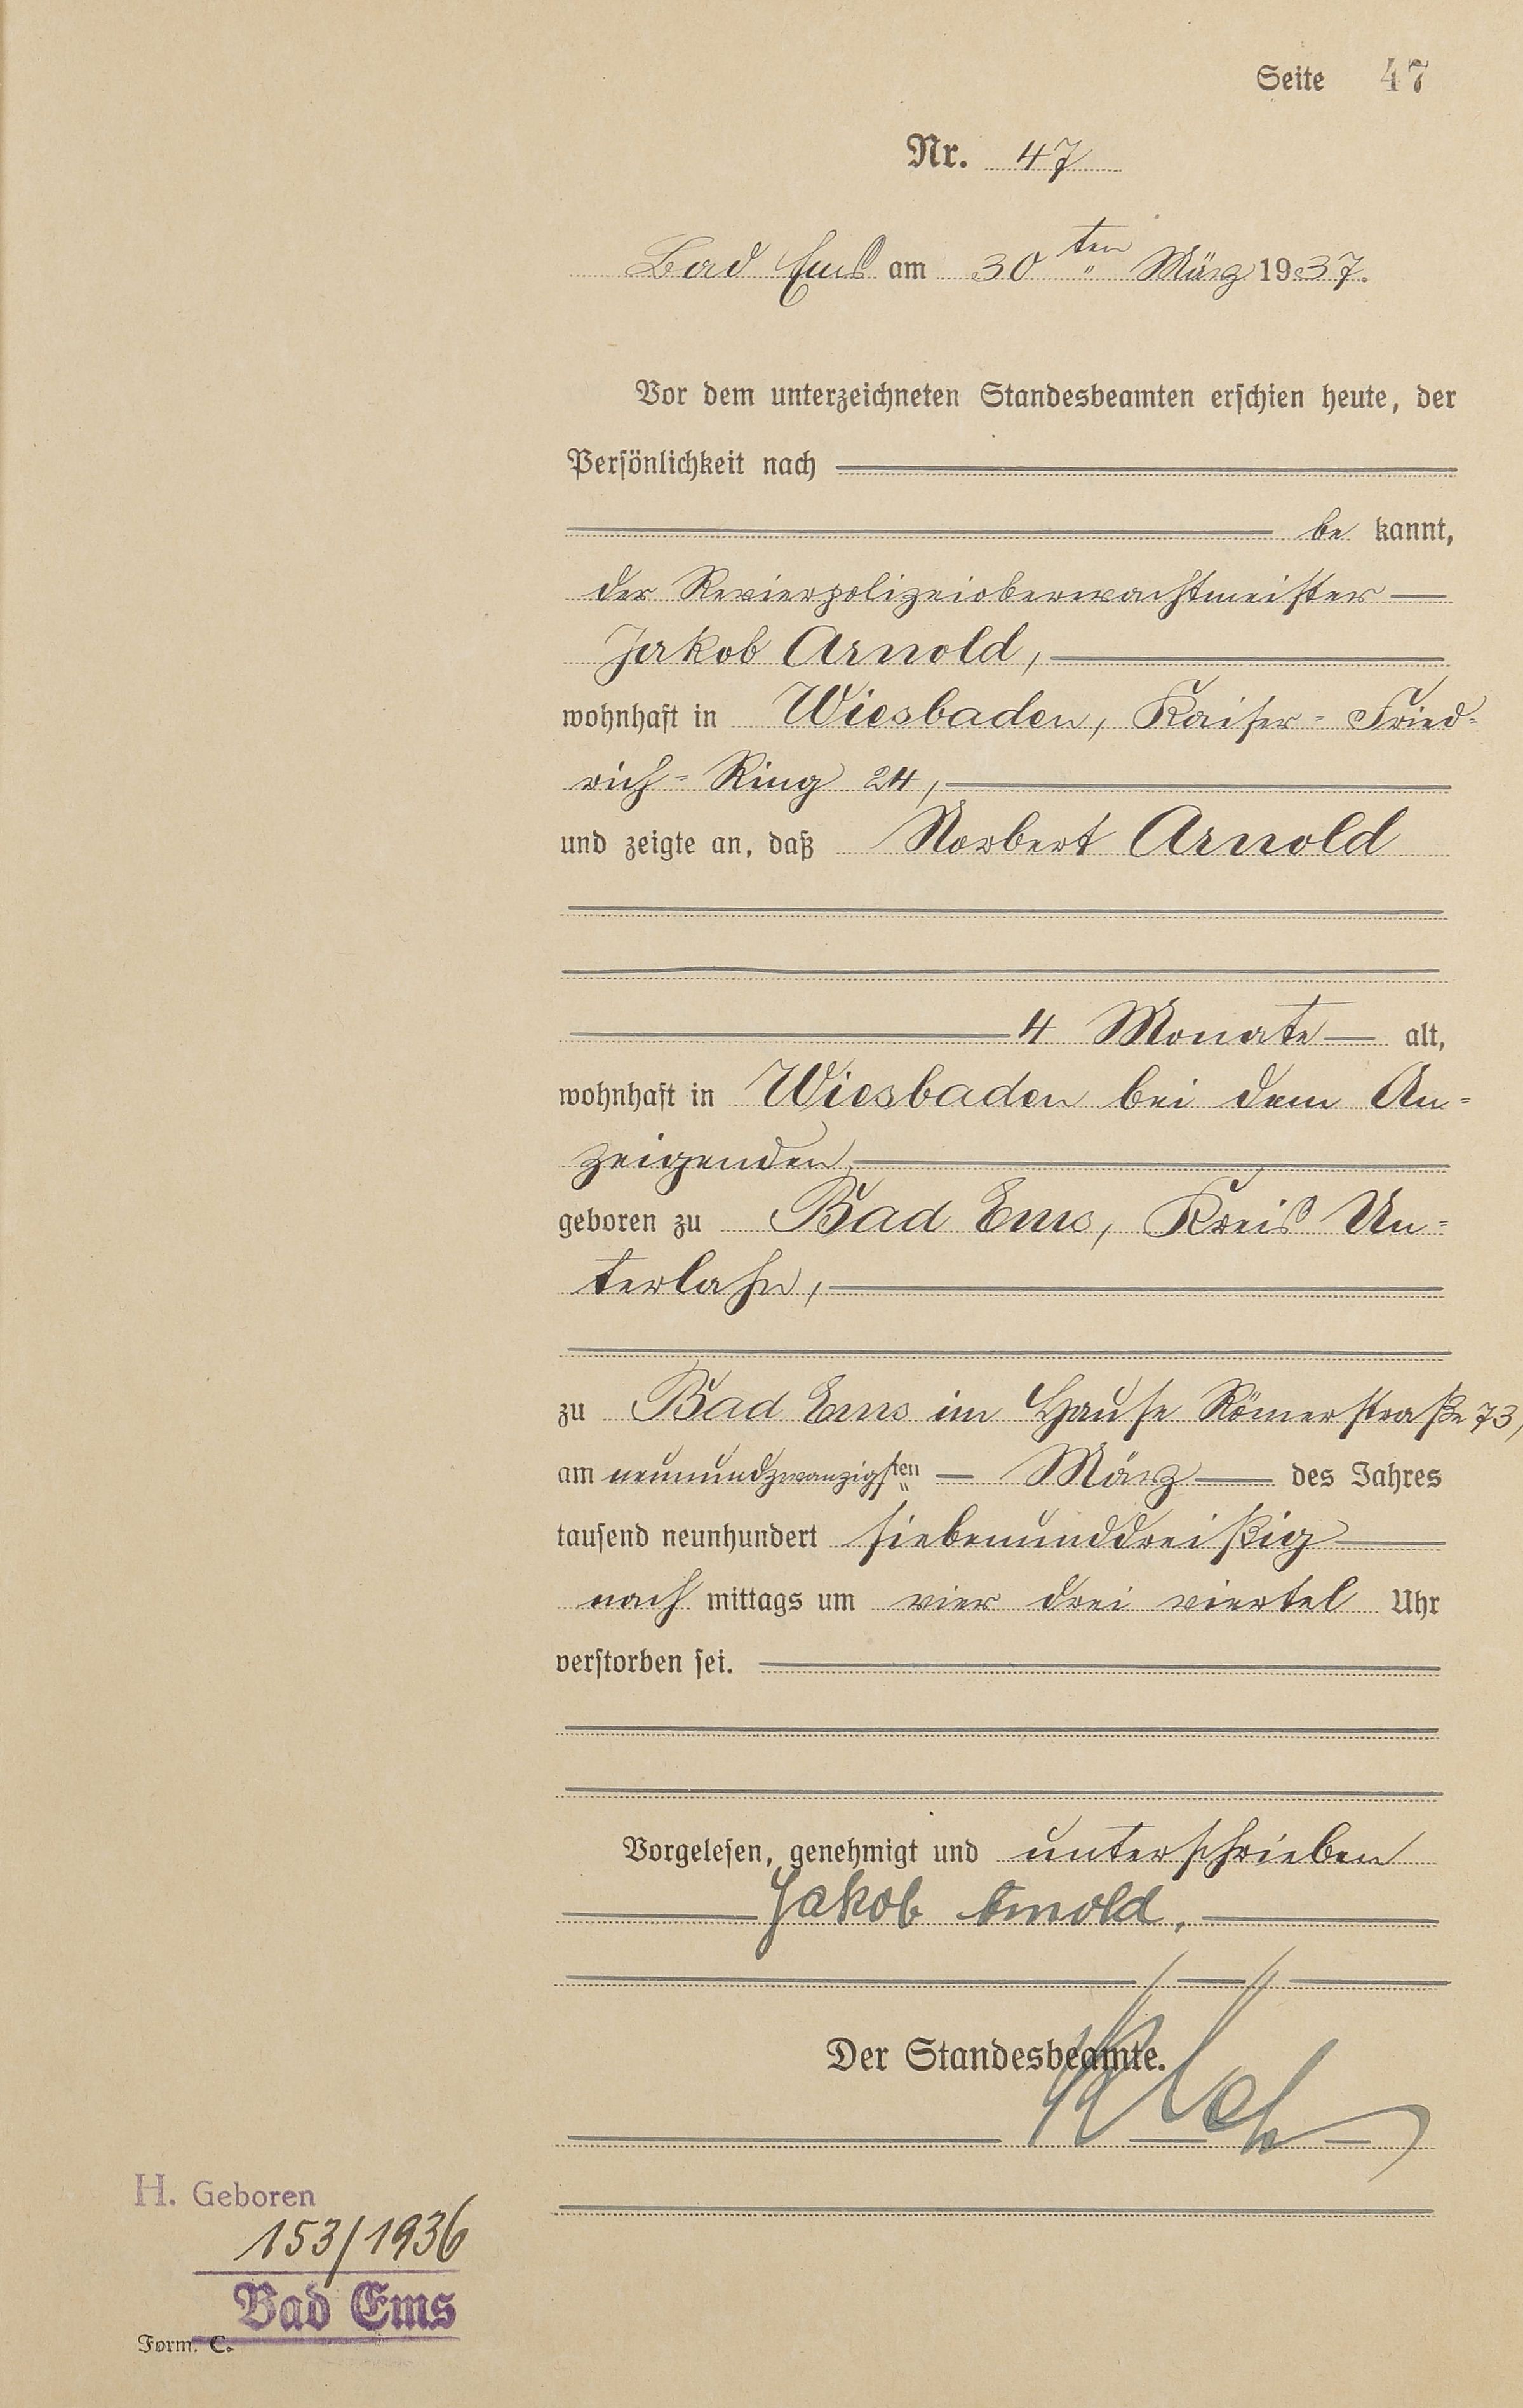 Seite 47
Nr. 47
Bad Ems am 30ten März 1937.
Vor dem unterzeichneten Standesbeamten erschien heute, der
Persönlichkeit nach
be kannt,
der Revierpolizeioberwachtmeister
Jakob Arnold,
wohnhaft in Wiesbaden, Kaiser-Fried-
rich-Ring 24,
und zeigte an, daß Norbert Arnold
4 Monate alt,
wohnhaft in Wiesbaden bei dem An-
zeigenden,
geboren zu Bad Ems, Kreis Un-
terlahn,
zu Bad Ems im Hause Römerstraße 73,
am neunundzwanzigsten März des Jahres
tausend neunhundert siebenunddreißig
nach mittags um vier drei viertel Uhr
verstorben sei.
Vorgelesen, genehmigt und unterschrieben
Jakob Arnold.
Der Standesbeamte.
H. Geboren
153/1936
Bad Ems
Form. C.